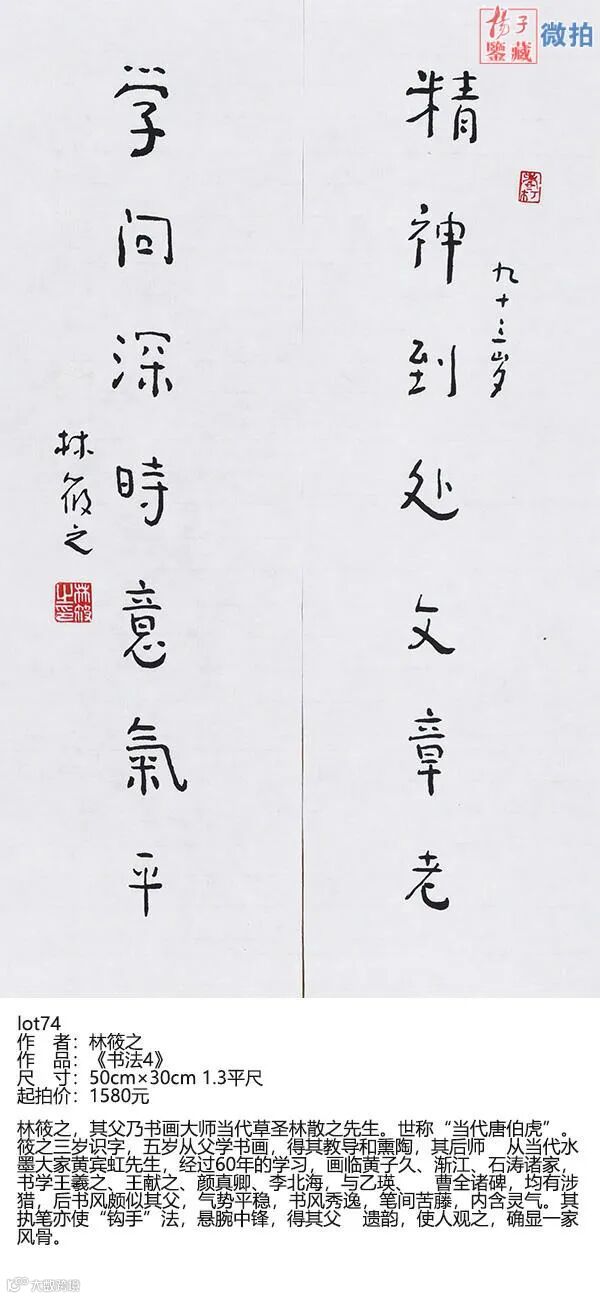 揚子
鑒藏
微拍
精神到处文章老
九十三岁
学问深時意氣平
林筱之
林筱之印
lot74
作 者：林筱之
作 品：《书法4》
尺 寸：50cm×30cm 1.3平尺
起拍价：1580元
林筱之，其父乃书画大师当代草圣林散之先生。世称“当代唐伯虎”。
筱之三岁识字，五岁从父学书画，得其教导和熏陶，其后师 从当代水
墨大家黄宾虹先生，经过60年的学习，画临黄子久、渐江、石涛诸家，
书学王羲之、王献之、颜真卿、李北海，与乙瑛、 曹全诸碑，均有涉
猎，后书风颇似其父，气势平稳，书风秀逸，笔间苦藤，内含灵气。其
执笔亦使“钩手”法，悬腕中锋，得其父 遗韵，使人观之，确显一家
风骨。
大数跨境